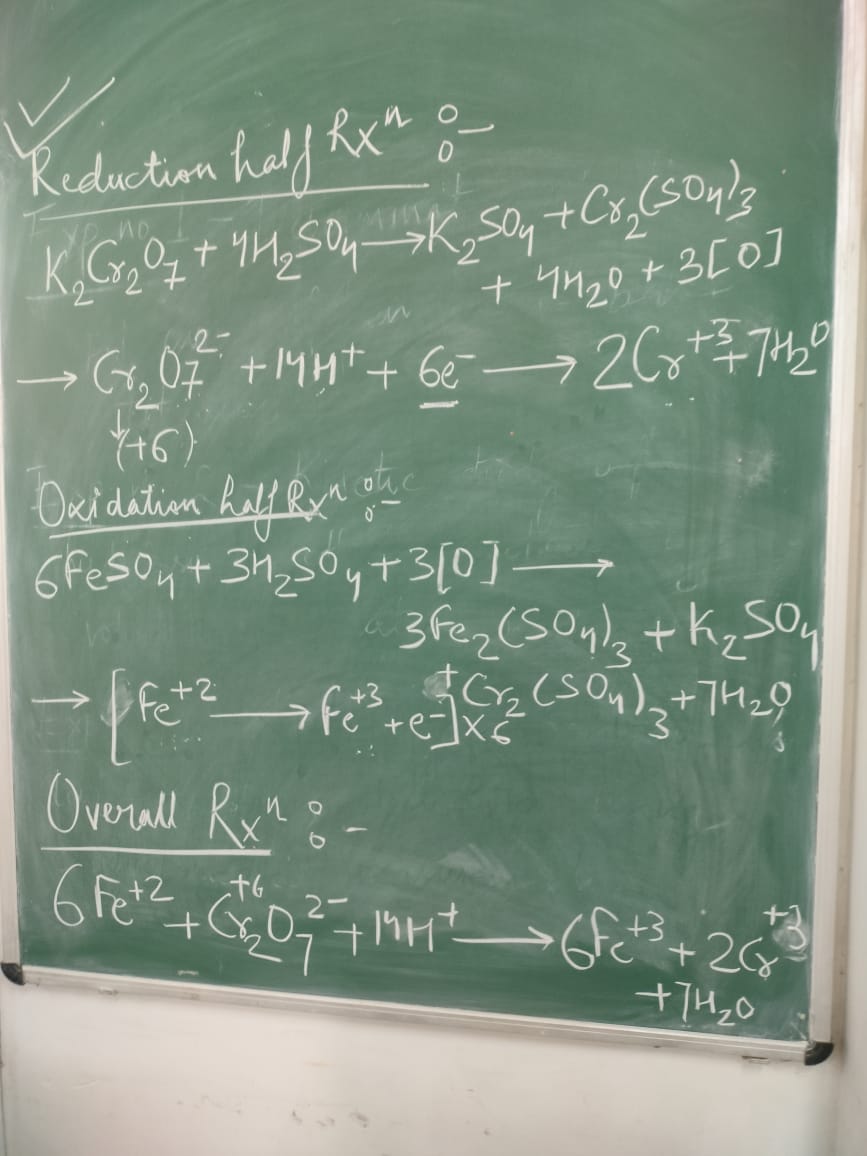 Reduction half Rxⁿ :-
K₂Cr₂O₇ + 4H₂SO₄ → K₂SO₄ + Cr₂(SO₄)₃
+ 4H₂O + 3[O]
→ Cr₂O₇²⁻ + 14H⁺ + 6e⁻ → 2Cr⁺³ + 7H₂O
↓
(+6)
Oxidation half Rxⁿ :-
6FeSO₄ + 3H₂SO₄ + 3[O] →
3Fe₂(SO₄)₃ + K₂SO₄
+ Cr₂(SO₄)₃ + 7H₂O
→ [Fe⁺² → Fe⁺³ + e⁻] × 6
Overall Rxⁿ :-
+6
6Fe⁺² + Cr₂O₇²⁻ + 14H⁺ → 6Fe⁺³ + 2Cr⁺³
+ 7H₂O